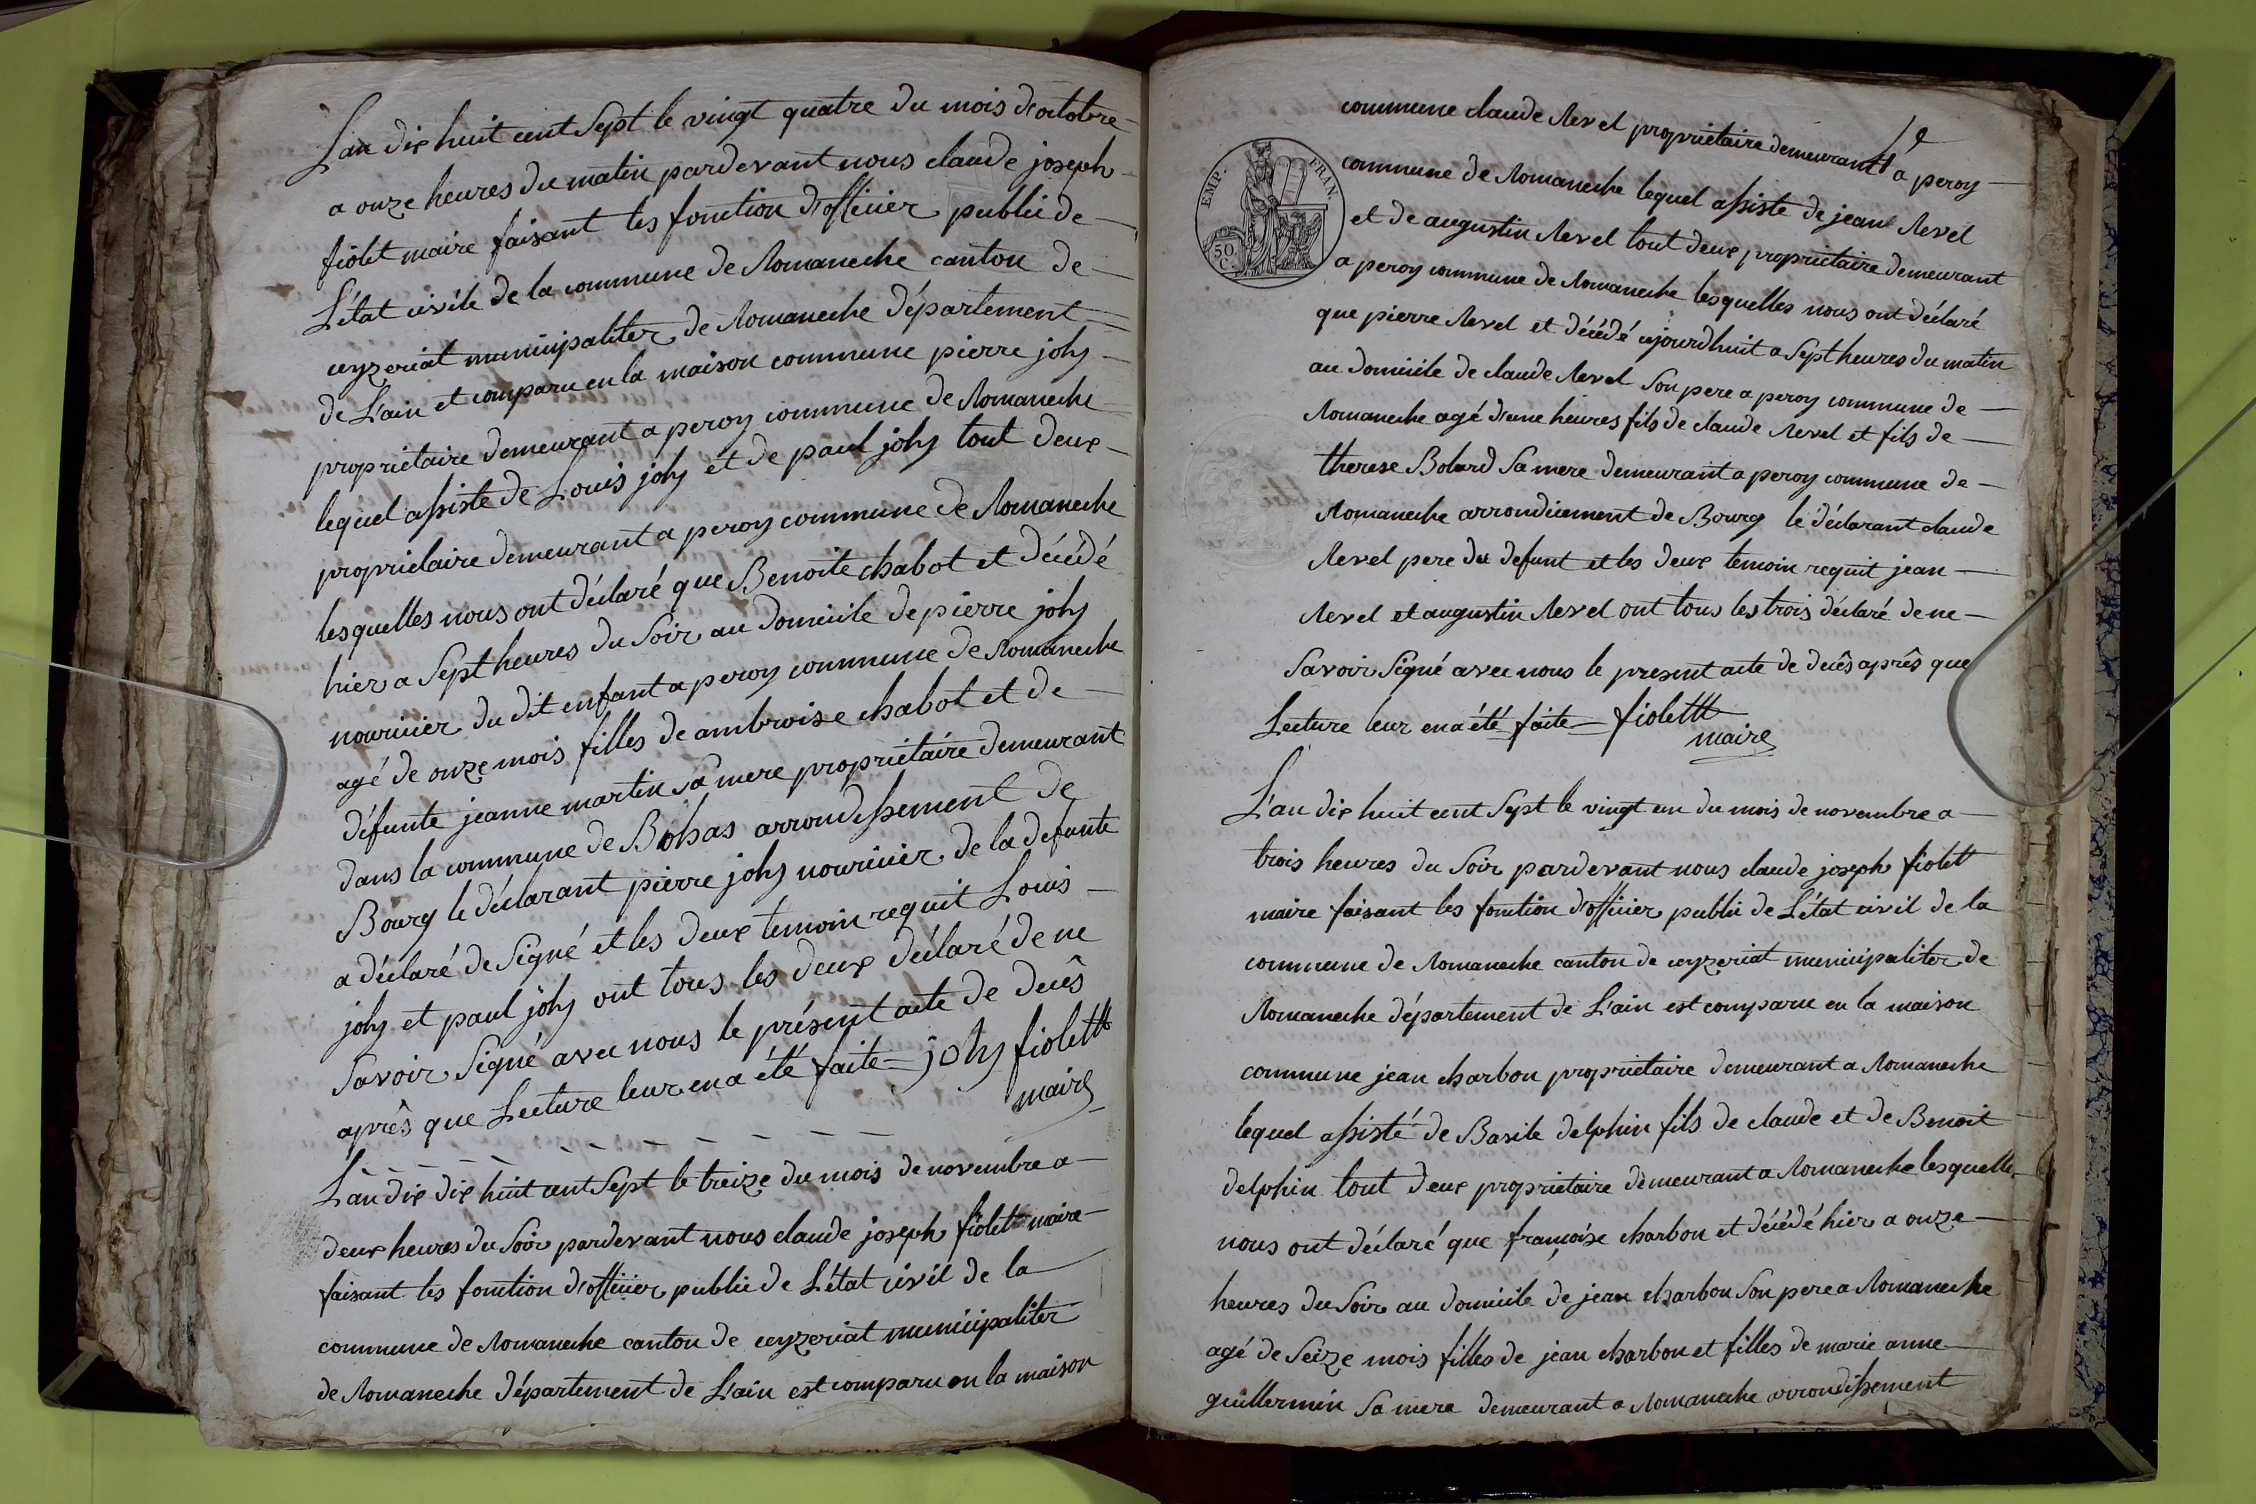 L'an dix huit cent Sept le vingt quatre du mois d'octobre
a onze heures du matin pardevant nous claude joseph
fiolet maire faisant les fonction d'officier public de
L'état civile de la commune de Romaneche canton de
ceyzeriat municipaliter de Romaneche département
de L'ain et comparu en la maison commune pierre joly
propriétaire demeurant a peroy commune de Romaneche
lequel assiste de Louis joly et de paul joly tout deux
propriétaire demeurant a peroy commune de Romaneche
lesquelles nous ont déclaré que Benoite chabot et décédé
hier a Sept heures du Soir au domicile de pierre joly
nouricier du dit enfant a peroy commune de Romaneche
agé de onze mois filles de ambroise chabot et de
défunte jeanne martin sa mere propriétaire demeurant
dans la commune de Bohas arrondissement de
Bourg le déclarant pierre joly nouricier de la defunte
a déclaré de Signé et les deux temoin requit Louis
joly et paul joly ont tous les deux déclaré de ne
Savoir Signé avec nous le présent acte de decês
aprês que Lecture leur en a été faite joly fiolett
maire
L'an dix dix huit cent Sept le treize du mois de novembre a
deux heures du Soir pardevant nous claude joseph fiolet maire
faisant les fonction d'officier public de L'état civil de la
commune de Romaneche canton de ceyzeriat municipaliter
de Romaneche département de L'ain est comparu en la maison
commune claude Revel propriétaire demeurant a peroy
commune de Romaneche lequel assiste de jean Revel
EMP. FRAN.
50 C.
et de augustin Revel tout deux propriétaire demeurant
a peroy commune de Romaneche lesquelles nous ont déclaré
que pierre Revel et décédé ajourdhuit a Sept heures du matin
au domicile de claude Revel Son pere a peroy commune de
Romaneche agé d'une heures fils de claude Revel et fils de
therese Bolard Sa mere demeurant a peroy commune de
Romaneche arrondicement de Bourg le déclarant claude
Revel pere du defunt et les deux temoin requit jean
Revel et augustin Revel ont tous les trois déclaré de ne
Savoir Signé avec nous le present acte de decês aprês que
Lecture leur en a été faite fiolett
maire
L'an dix huit cent Sept le vingt un du mois de novembre a
trois heures du Soir pardevant nous claude joseph fiolett
maire faisant les fonction d'officier public de L'état civil de la
commune de Romaneche canton de ceyzeriat municipaliter de
Romaneche département de L'ain est comparu en la maison
commune jean charbon propriétaire demeurant a Romaneche
lequel assisté de Basile delphin fils de claude et de Benoit
delphin tout deux propriétaire demeurant a Romaneche lesquelle
nous ont déclaré que françoise charbon et décédé hier a onze
heures du Soir au domicile de jean charbon Son pere a Romaneche
agé de Seize mois filles de jean charbon et filles de marie anne
guillermin Sa mere demeurant a Romaneche arrondissement